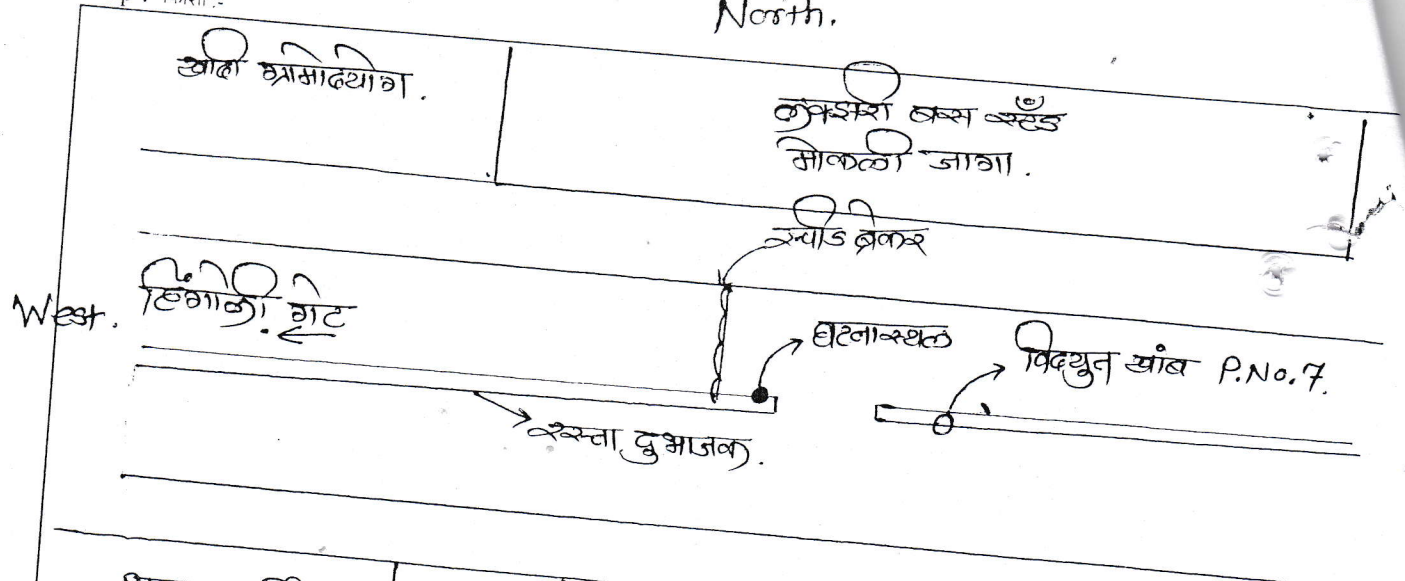 North.
खादी ग्रामोदयोग.
लक्झरी बस स्टँड
मोकळी जागा.
स्पीड ब्रेकर
West.
हिंगोली गेट
घटनास्थल
विदयुत खांब P.No.7.
रस्ता दुभाजक.